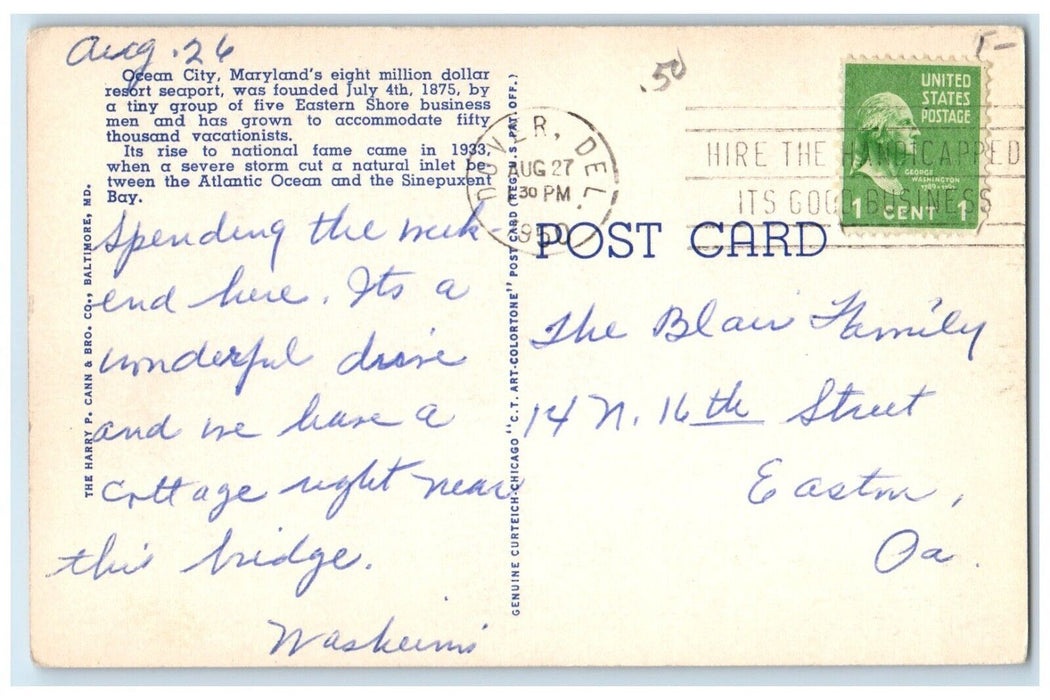 Aug. 26
Ocean City, Maryland's eight million dollar
resort seaport, was founded July 4th, 1875, by
a tiny group of five Eastern Shore business
men and has grown to accommodate fifty
thousand vacationists.
Its rise to national fame came in 1933,
when a severe storm cut a natural inlet be-
tween the Atlantic Ocean and the Sinepuxent
Bay.
Spending the week-
end here. Its a
wonderful drive
and we have a
cottage right near
this bridge.
THE HARRY P. CANN & BRO. CO., BALTIMORE, MD.
GENUINE CURTEICH-CHICAGO "C.T. ART-COLORTONE" POST CARD (REG. U.S. PAT. OFF.)
.50
DOVER, DEL.
AUG 27
30 PM
1950
HIRE THE HANDICAPPED
ITS GOOD BUSINESS
UNITED
STATES
POSTAGE
GEORGE
WASHINGTON
1789-1797
1 CENT 1
POST CARD
The Blair Family
14 N. 16th Street
Easton,
Pa.